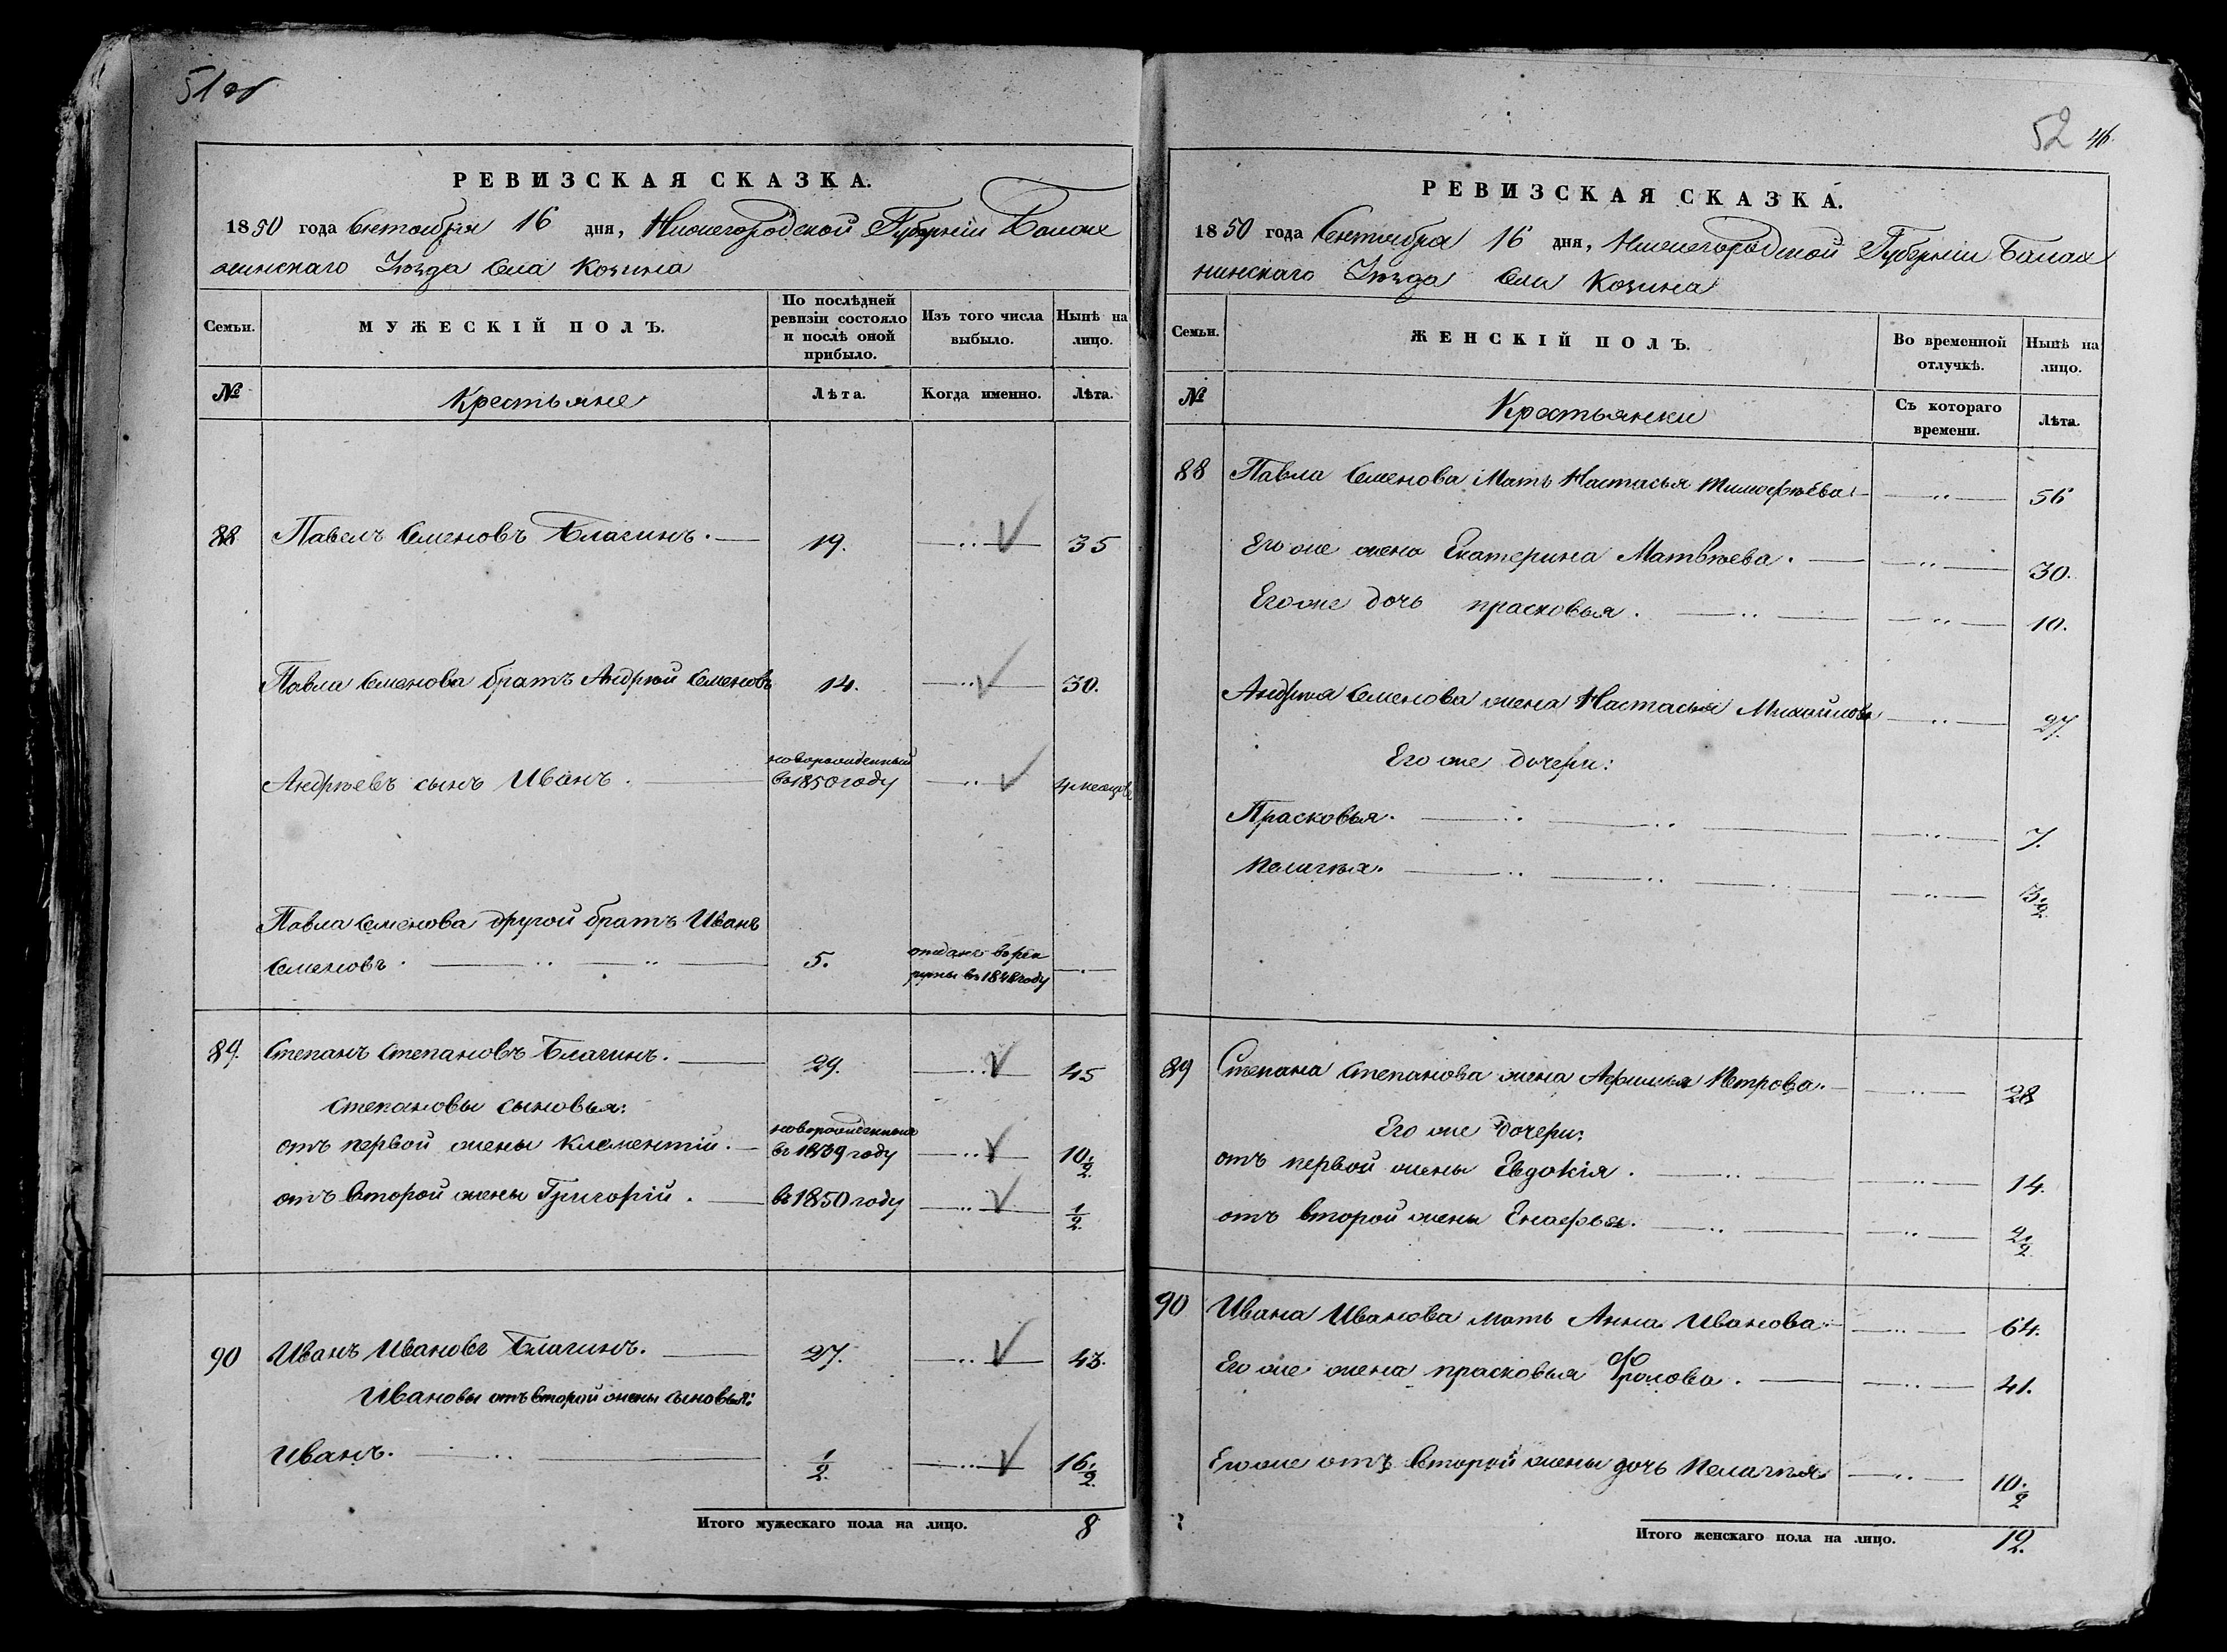 51 об
РЕВИЗСКАЯ СКАЗКА.
1850 года Сентября 16 дня, Нижегородской Губерніи Балах
нинскаго Уѣзда Села Козина
Семьи.
МУЖЕСКІЙ ПОЛЪ.
По послѣдней ревизіи состояло и послѣ оной прибыло.
Изъ того числа выбыло.
Нынѣ на лицо.
№
Крестьяне
Лѣта.
Когда именно.
Лѣта.
88 Павелъ Семеновъ Благинъ. 19. 35
Павла Семенова братъ Андрѣй Семеновъ 14. 30.
новорожденный
Андрѣевъ сынъ Иванъ. въ 1850 году 4 месяцовъ
Павла Семенова другой братъ Иванъ
Семеновъ. 5. отданъ в рек
руты въ 1848 году
89. Степанъ Степановъ Благинъ. 29. 45
Степановы сыновья:
новорожденные
отъ первой жены Климентій. въ 1839 году 10 1/2
отъ второй жены Григорій. въ 1850 году 1/2
90 Иванъ Ивановъ Благинъ. 27. 43.
Ивановы отъ второй жены сыновья:
Иванъ. 1/2 16 1/2
Итого мужескаго пола на лицо. 8
52 46
РЕВИЗСКАЯ СКАЗКА.
1850 года Сентября 16 дня, Нижегородской Губерніи Балах
нинскаго Уѣзда Села Козина
Семьи.
ЖЕНСКІЙ ПОЛЪ.
Во временной отлучкѣ.
Нынѣ на лицо.
№
Крестьянки
Съ котораго времени.
Лѣта.
88 Павла Семенова Мать Настасья Тимофѣева 56
Его же жена Екатерина Матвѣева. 30.
Его же дочь прасковья. 10.
Андрѣя Семенова жена Настасья Михайлова 27.
Его же дочери:
Прасковья. 7.
Пелагѣя. 3 1/2
89 Степана Степанова жена Афимья Петрова. 28
Его же дочери:
отъ первой жены Евдокія. 14.
отъ второй жены Енафья. 2 1/2
90 Ивана Иванова мать Анна Иванова 64.
Его же жена прасковья Фролова. 41.
Его же отъ второй жены дочь Пелагѣя 10 1/2
Итого женскаго пола на лицо. 12.